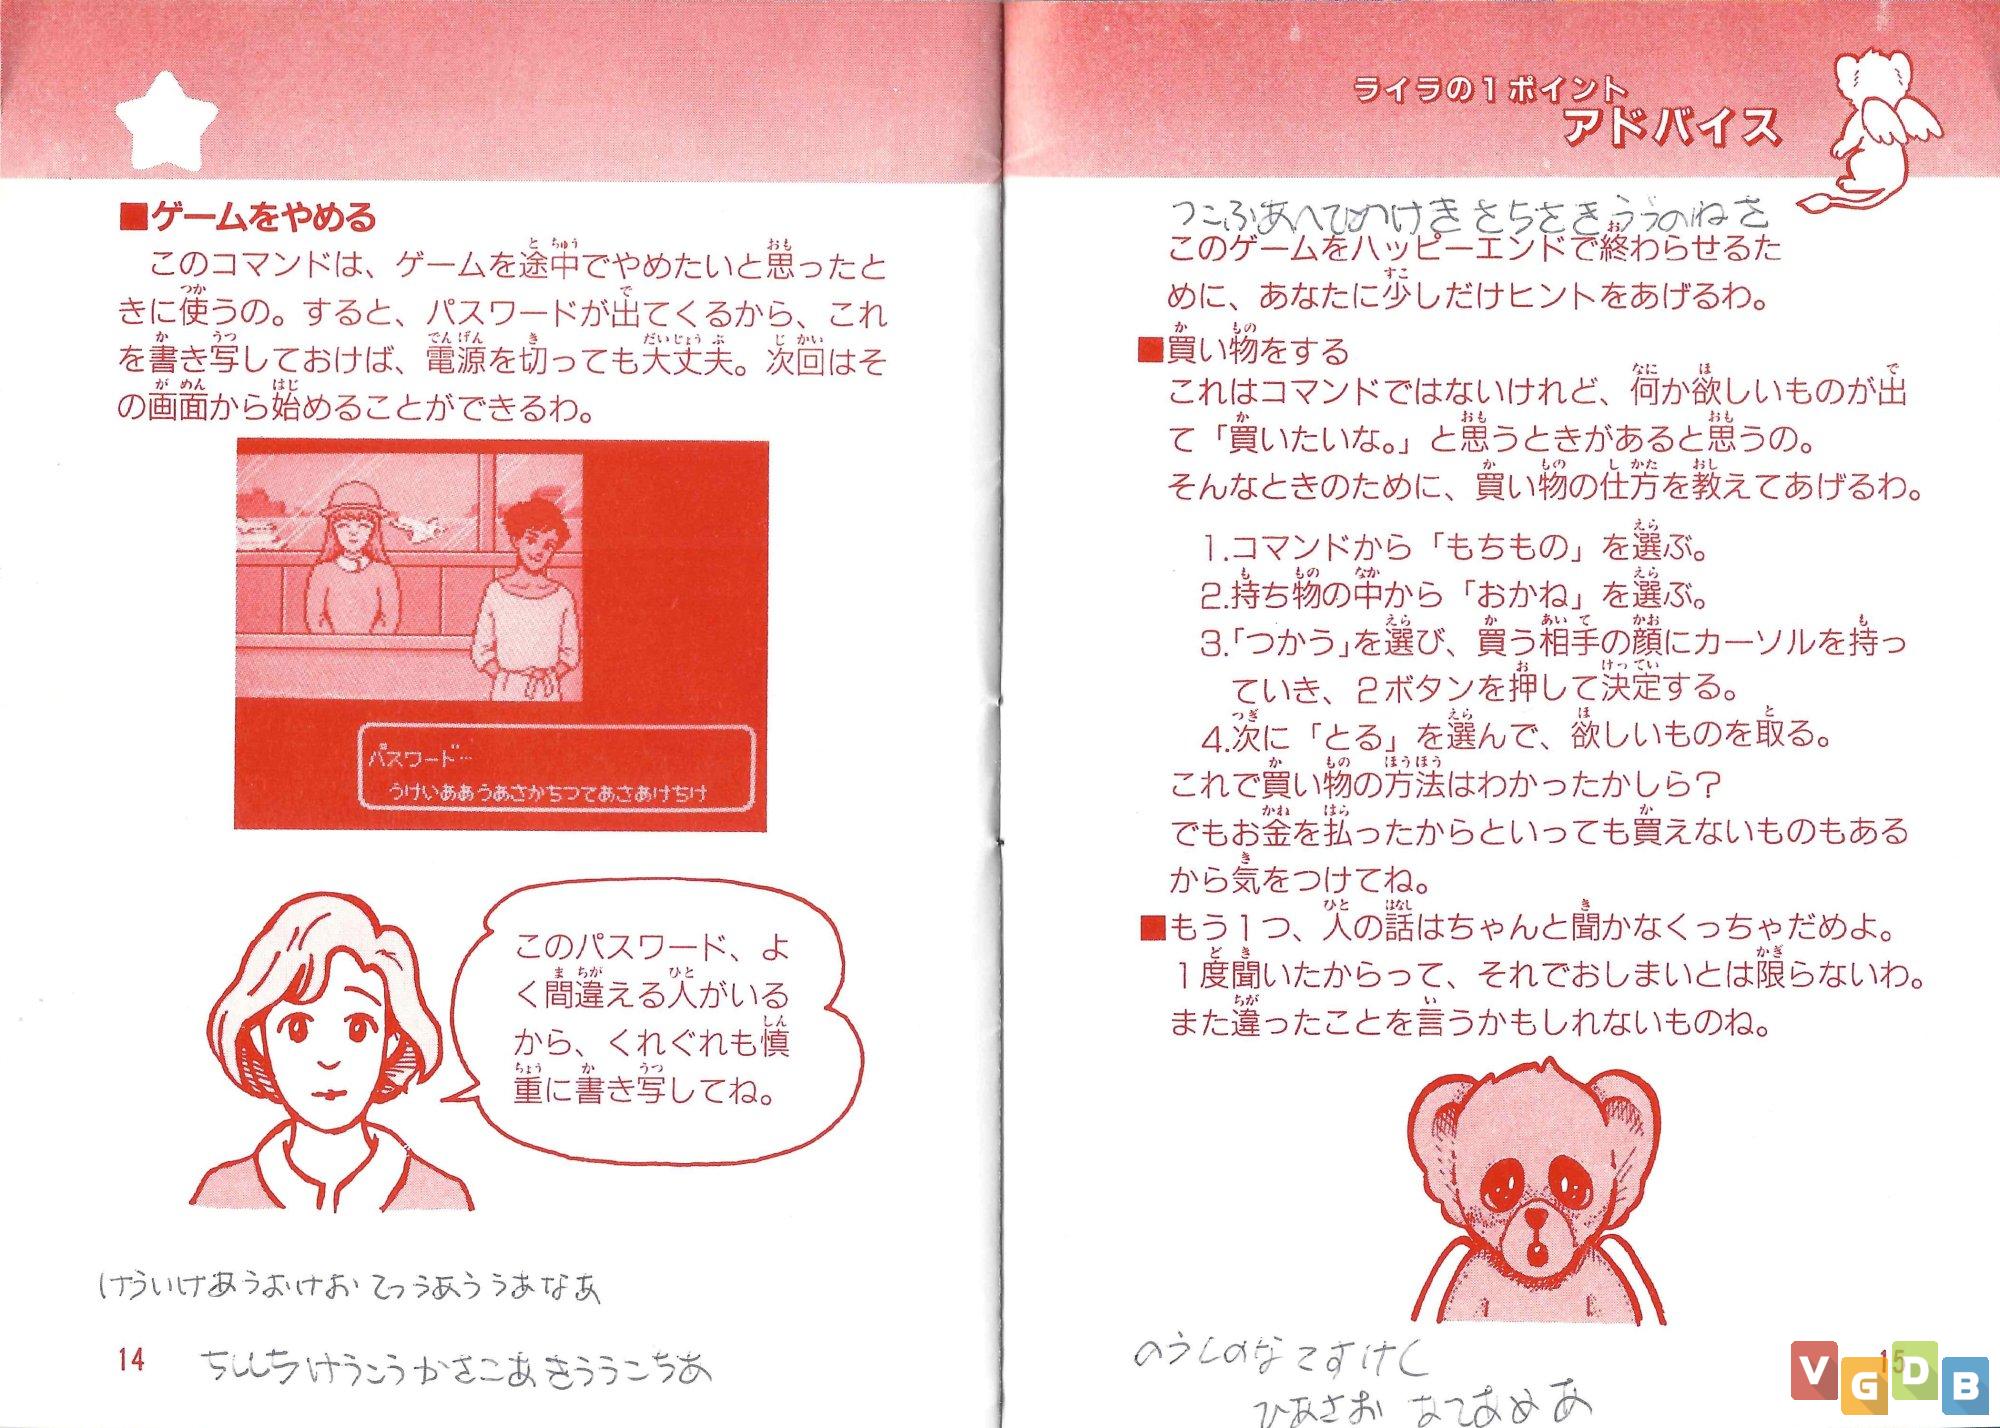 ■ゲームをやめる
このコマンドは、ゲームを途中でやめたいと思ったと
きに使うの。すると、パスワードが出てくるから、これ
を書き写しておけば、電源を切っても大丈夫。次回はそ
の画面から始めることができるわ。
パスワード…
うけいああうあさかちつてあさあけちけ
このパスワード、よ
く間違える人がいる
から、くれぐれも慎
重に書き写してね。
けういけあうおけお てつうあううあなあ
14
ちししちけうこうかさこあきううこちあ
ライラの1ポイント
アドバイス
つこふあへひぬけきさちさきううのねさ
このゲームをハッピーエンドで終わらせるた
めに、あなたに少しだけヒントをあげるわ。
■買い物をする
これはコマンドではないけれど、何か欲しいものが出
て「買いたいな。」と思うときがあると思うの。
そんなときのために、買い物の仕方を教えてあげるわ。
1.コマンドから「もちもの」を選ぶ。
2.持ち物の中から「おかね」を選ぶ。
3.「つかう」を選び、買う相手の顔にカーソルを持っ
ていき、2ボタンを押して決定する。
4.次に「とる」を選んで、欲しいものを取る。
これで買い物の方法はわかったかしら？
でもお金を払ったからといっても買えないものもある
から気をつけてね。
■もう1つ、人の話はちゃんと聞かなくっちゃだめよ。
1度聞いたからって、それでおしまいとは限らないわ。
また違ったことを言うかもしれないものね。
のうしのなてすけく
ひあさお
15
VGDB